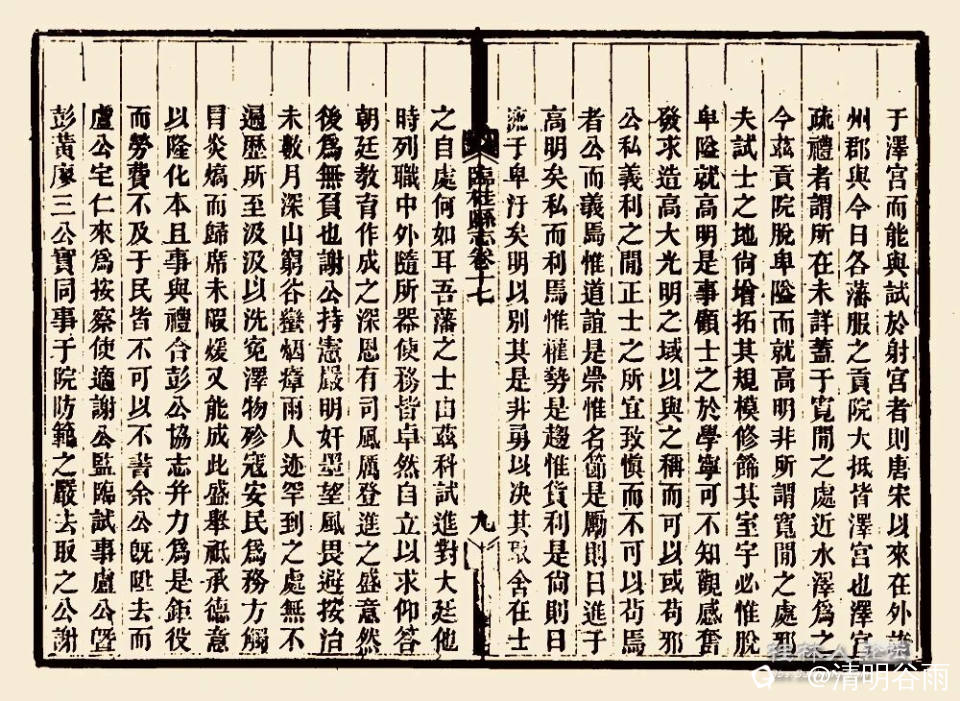 于澤宮而能與試於射宮者則唐宋以來在外諸
州郡與今日各藩服之貢院大抵皆澤宮也澤宮
疏禮者謂所在未詳蓋于寬閒之處近水澤爲之
今茲貢院脫卑隘而就高明非所謂寬閒之處邪
夫試士之地尙增拓其規模修飾其室宇必惟脫
卑隘就高明是事顧士之於學寧可不知觀感奮
發求造高大光明之域以與之稱而可以或苟邪
公私義利之閒正士之所宜致愼而不可以苟焉
者公而義焉惟道誼是崇惟名節是勵則日進于
高明矣私而利焉惟權勢是趨惟貨利是尙則日
流于卑汙矣明以別其是非勇以决其取舍在士
臨桂縣志卷十七
九
之自處何如耳吾藩之士由茲科試進對大廷他
時列職中外隨所器使務皆卓然自立以求仰答
朝廷教育作成之深恩有司風厲登進之盛意然
後爲無負也謝公持憲嚴明奸墨望風畏避按治
未數月深山窮谷蠻烟瘴雨人迹罕到之處無不
遍歷所至汲汲以洗寃澤物殄寇安民爲務方觸
目炎熇而歸席未暇煖又能成此盛舉祇承德意
以隆化本且事與禮合彭公協志幷力爲是鉅役
而勞費不及于民皆不可以不書余公旣陞去而
盧公宅仁來爲按察使適謝公監臨試事盧公曁
彭黃廖三公實同事于院防範之嚴去取之公謝
桂林人論壇
@清明谷雨